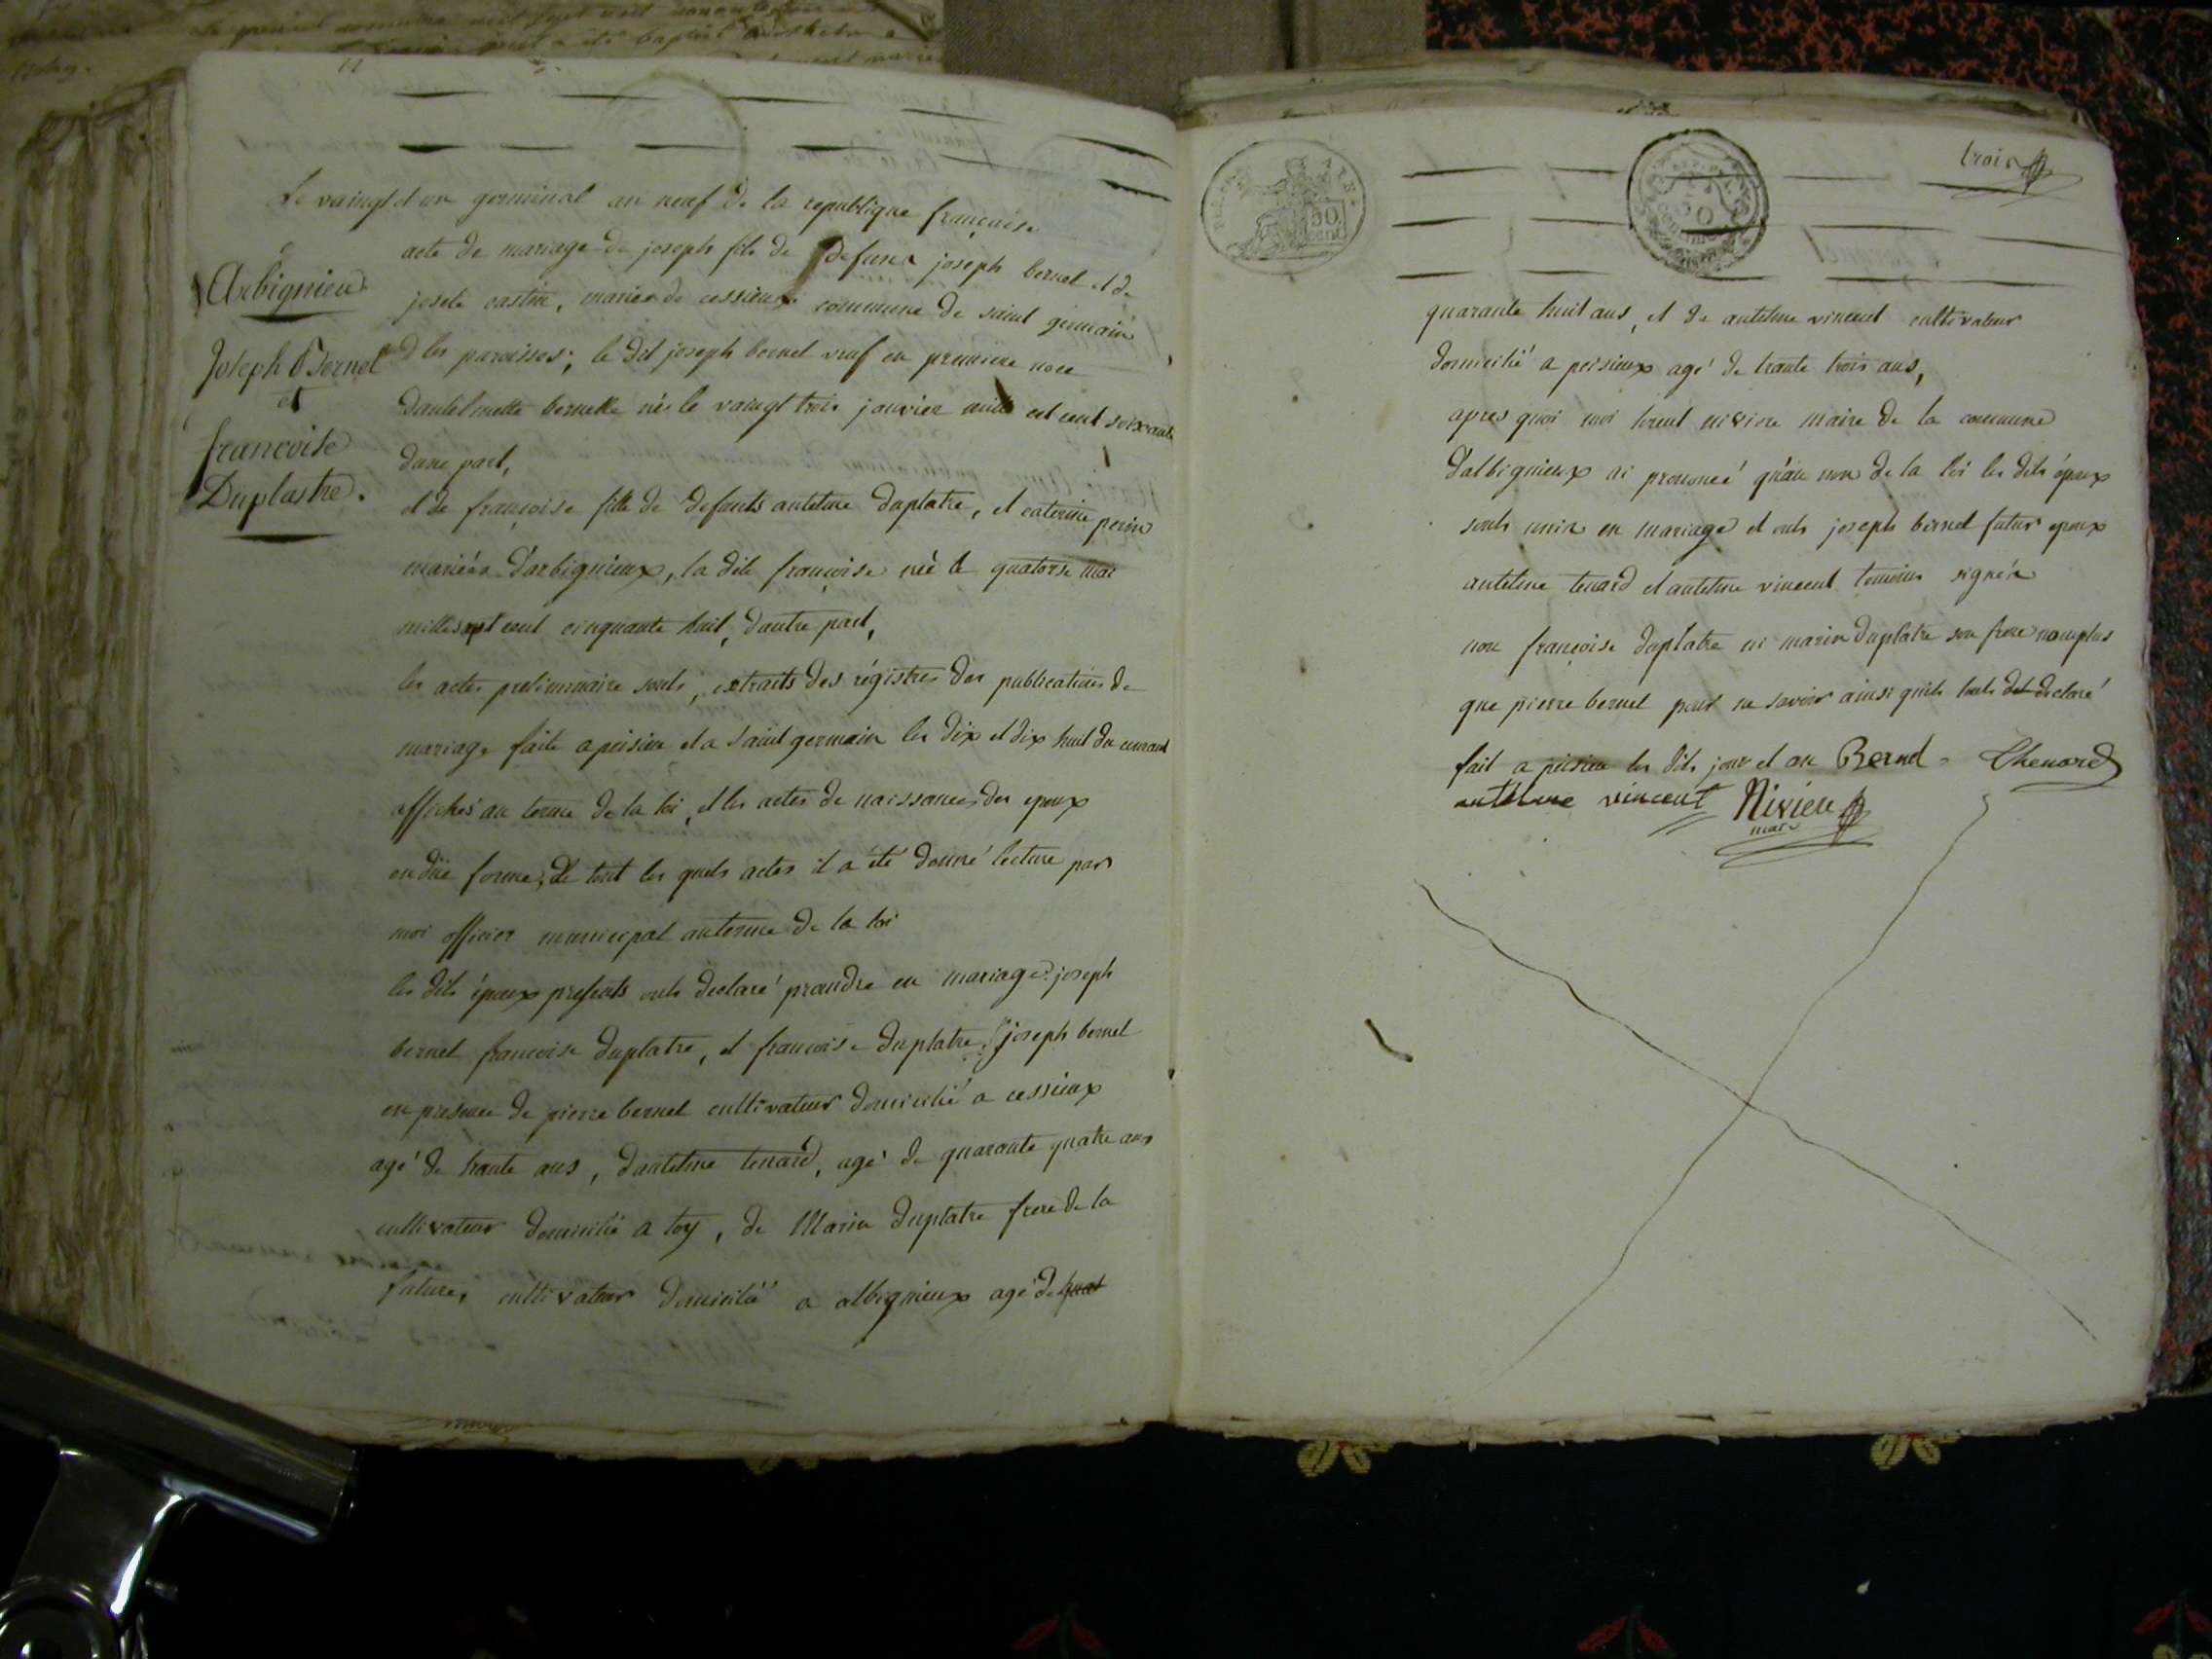 Le vaingt et un germinal an neuf de la republique française
acte de mariage de joseph fils de defunct joseph bernel et de
josete castin, mariés de cessieux commune de saint germain
les paroisses; le dit joseph bernel veuf en premiere noce
dantelmette bernelle né le vaingt trois janvier mille cet cent soixante
dune part,
et de françoise fille de defunts antelme duplatre, et caterine perin
mariés d'arbignieux, la dite françoise née le quatorse mai
mille sept cent cinquante huit, dautre part,
les actes preliminaire sonts; extraits des régistres des publications de
mariage faite a peisieu et a saint germain les dix et dix huit du courant
affichés au terme de la loi, et les actes de naissances des epoux
en düe forme, de tout les quels actes il a été donné lecture par
moi officier municipal au terme de la loi
les dits époux presents onts declaré prandre en mariage: joseph
bernel francoise duplatre, et francoise duplatre joseph bernel
en presence de pierre bernel cultivateur domicilié a cessieux
agé de trante ans, dantelme tenard, agé de quarante quatre ans
cultivateur domicilié a toy, de Marin duplatre frere de la
future, cultivateur domicilié a albignieux agé de
Arbignieu
Joseph Bernel
et
francoise
Duplastre.
trois
50
cent
quarante huit ans, et de antelme vincent cultivateur
domicilié a peisieux agé de trante trois ans,
apres quoi moi niviere maire de la commune
d'albignieux ai prononcé qu'au nom de la loi les dits époux
sonts unis en mariage et onts joseph bernel futur epoux
antelme tenard et antelme vincent temoins signés
non françoise duplatre ni marin duplatre son frere nomplus
que pierre bernel pour ne savoir ainsi quils lonts declaré
fait a peisieu les dits jour et an Bernel Thenard
antelme vincent Niviere
maire